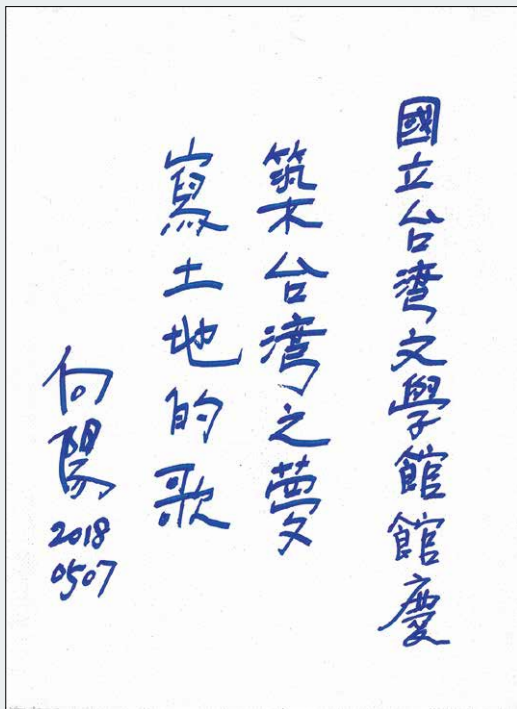 國立台灣文學館館慶
築台灣之夢
寫土地的歌
向陽
2018
0507